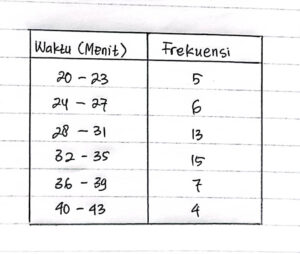 Waktu (Menit) Frekuensi
20 - 23 5
24 - 27 6
28 - 31 13
32 - 35 15
36 - 39 7
40 - 43 4